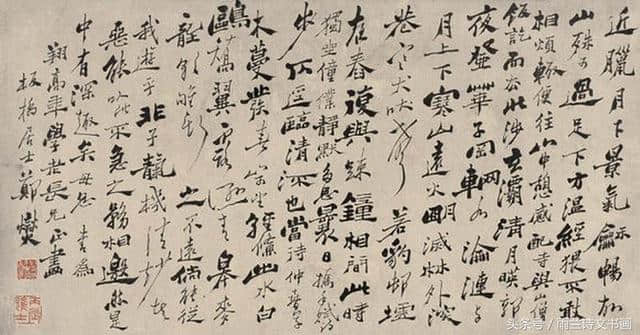 近臘月下景氣龢暢故
山殊可過足下方温經猥不敢
相煩輒便往山中憩感配寺與山僧
飯訖而去北涉玄灞清月暎郭
夜登華子岡輞水淪漣與
月上下寒山遠火明滅林外深
巷寒犬吠聲若豹邨墟
夜舂復與疎鐘相間此時
獨坐僮僕靜默多思曩日攜手賦詩
步仄逕臨清流也當待仲春草
木蔓發春山可望輕鯈出水白
鷗矯翼露溼青皋麥
隴朝雊斯之不遠倘能從
我遊乎非子天機清妙者
惡能以此不急之務相邀然是
中有深趣矣毋忽 書為
翔高年學老長兄正畫
板橋居士鄭燮
头条号 / 雨兰诗文书画